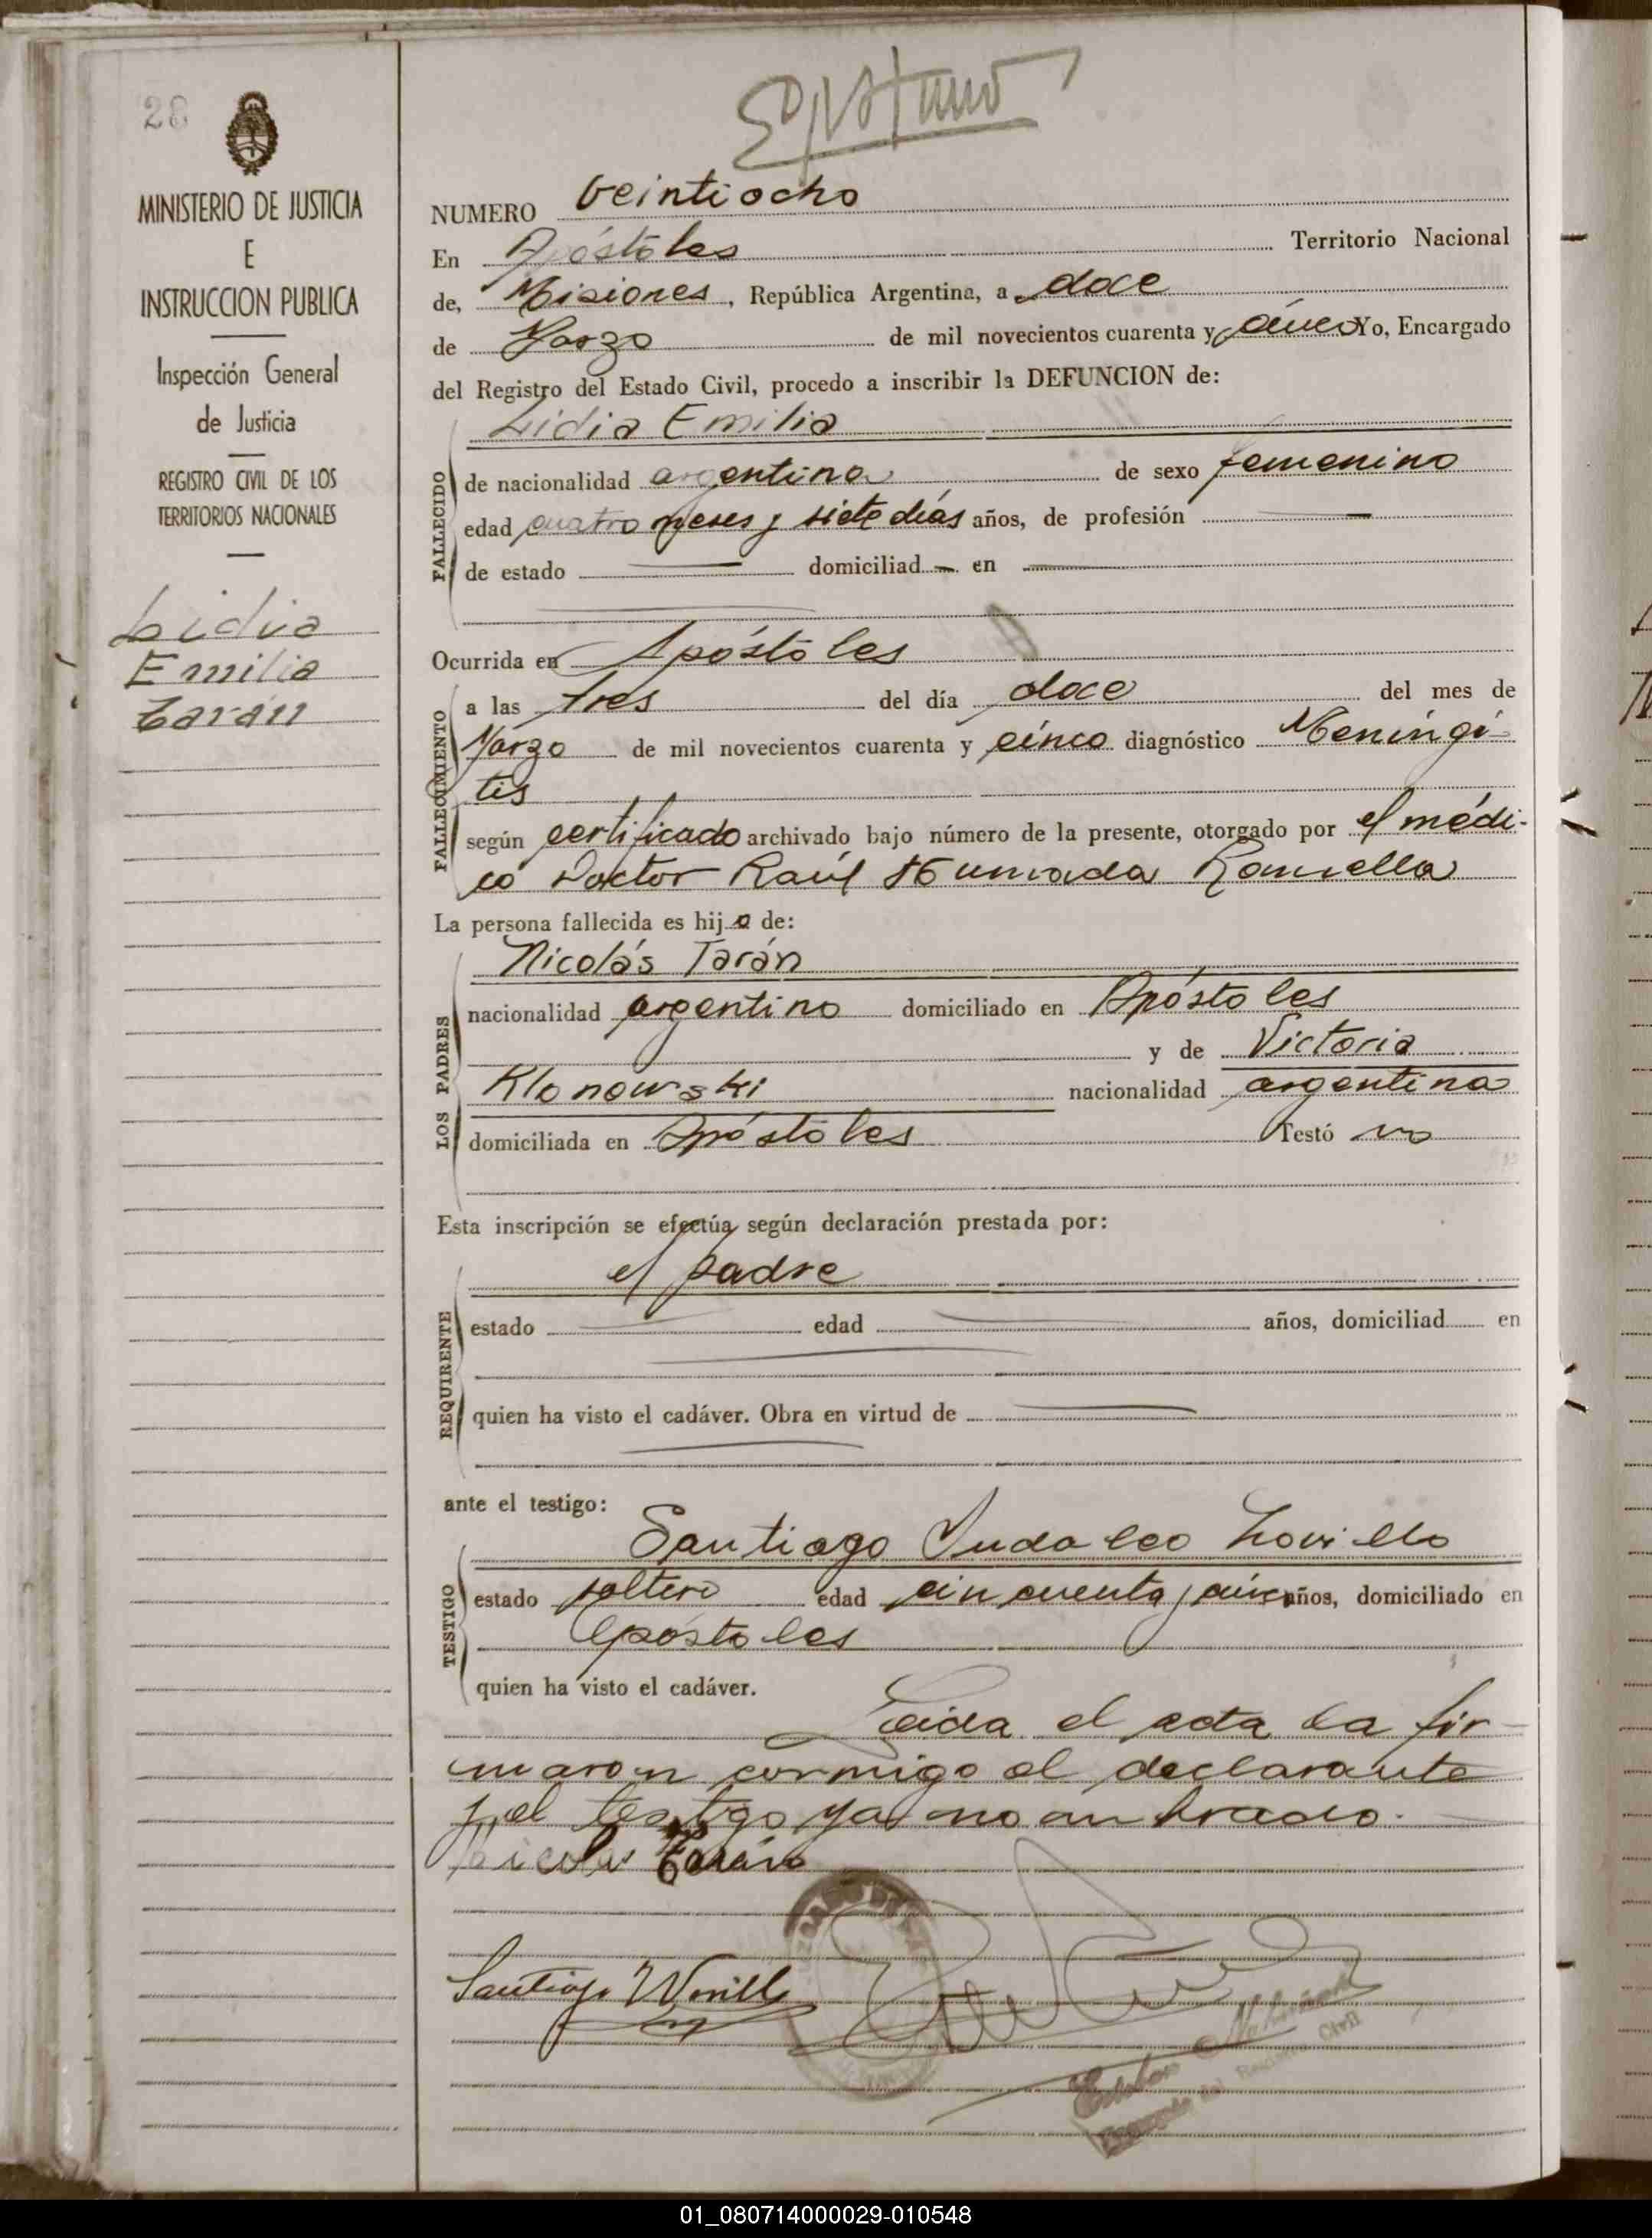 28
MINISTERIO DE JUSTICIA
E
INSTRUCCION PUBLICA
Inspección General
de Justicia
REGISTRO CIVIL DE LOS
TERRITORIOS NACIONALES
Lidia
Emilia
Tarán
NUMERO Veintiocho
En Apóstoles Territorio Nacional
de, Misiones, República Argentina, a doce
de Marzo de mil novecientos cuarenta y cinco Yo, Encargado
del Registro del Estado Civil, procedo a inscribir la DEFUNCION de:
Lidia Emilia
FALLECIDO
de nacionalidad argentina de sexo femenino
edad cuatro meses y siete días años, de profesión
de estado domiciliad en
Ocurrida en Apóstoles
FALLECIMIENTO
a las tres del día doce del mes de
Marzo de mil novecientos cuarenta y cinco diagnóstico Meningi-
tis
según certificado archivado bajo número de la presente, otorgado por el médi-
co Doctor Raúl Humada
La persona fallecida es hija de:
Nicolás Tarán
LOS PADRES
nacionalidad argentino domiciliado en Apóstoles
y de Victoria
Klonowski nacionalidad argentina
domiciliada en Apóstoles Testó no
Esta inscripción se efectúa según declaración prestada por:
el padre
REQUIRENTE
estado edad años, domiciliad en
quien ha visto el cadáver. Obra en virtud de
ante el testigo:
Santiago Indaleo Lovillo
TESTIGO
estado soltero edad cincuenta y cinco años, domiciliado en
Apóstoles
quien ha visto el cadáver.
Leida el acta la fir-
maron conmigo el declarante
y el testigo ya nombrado.
Nicolas Tarán
Santiago
Esteban
Encargado del Registro Civil
01_080714000029-010548